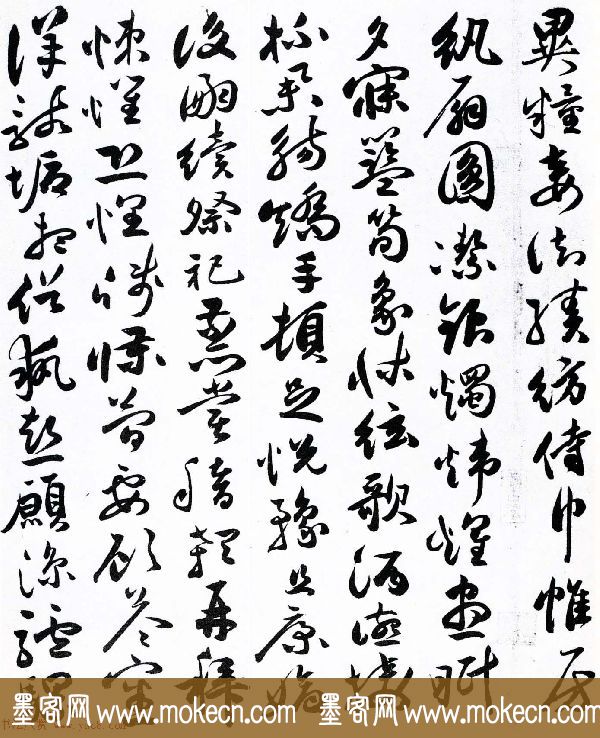 異糧妾御績紡侍巾帷房
紈扇圓潔銀燭煒煌晝眠
夕寐藍筍象床絃歌酒讌接
杯舉觴矯手頓足悅豫且康嫡
後嗣續祭祀蒸嘗稽顙再拜
悚懼恐惶牋牒簡要顧答審
詳骸垢想浴執熱願涼驢騾
墨客网 www.mokecn.com 墨客网 www.mokecn.com